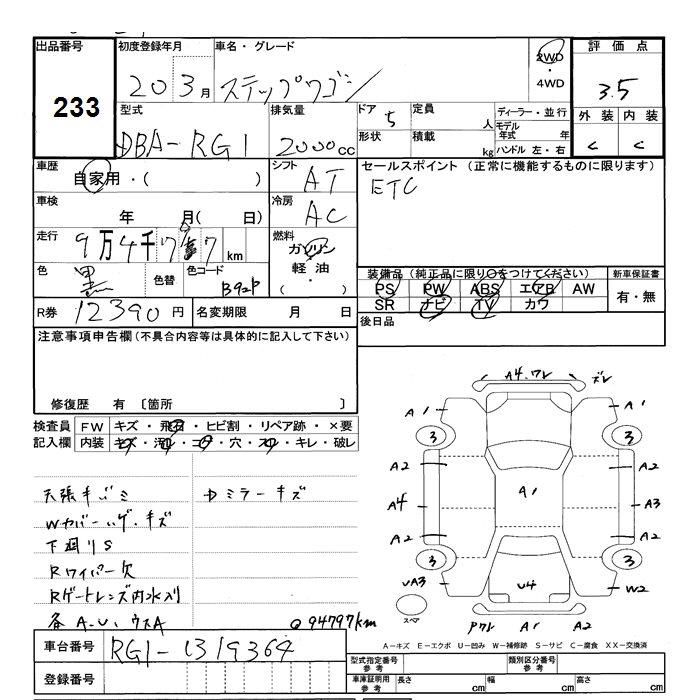 出品番号 初度登録年月 車名・グレード 評価点
233
20 3月 ステップワゴン 2WD・4WD 3.5
外装 内装
C C
型式 排気量 ドア 5 定員 人 ディーラー・並行
DBA-RG1 2000cc 形状 積載 kg モデル年式 年
ハンドル 左・右
車歴 シフト セールスポイント (正常に機能するものに限ります)
自家用・( ) AT ETC
車検 年 月( 日) 冷房 AC
走行 9万4千7 7km 燃料 ガソリン・軽油・( )
色 黒 色替 色コード B92P
装備品(純正品に限り○をつけてください) 新車保証書
PS PW ABS エアB AW 有・無
SR ナビ TV カワ
R券 12390円 名変期限 月 日 後日品
注意事項申告欄(不具合内容等は具体的に記入して下さい)
修復歴 有 〔箇所 〕
検査員記入欄 FW キズ・飛石・ヒビ割・リペア跡・×要
内装 キズ・汚れ・コゲ・穴・スレ・キレ・破レ
天張キバミ
中ミラーキズ
Wカバーハゲ、キズ
下廻りS
Rワイパー欠
Rゲートレンズ内水入り
各A.U、ウスA
94797km
A4.ワレ ズレ
A1 A1
3 3
A2 A2
A4 A1 A3
A2 A2
3 3
UA3 U4 W2
スペア
Pワレ A1 A2
A-キズ E-エクボ U-凹み W-補修跡 S-サビ C-腐食 XX-交換済
車台番号 RG1-1319364
登録番号
型式指定番号 参考 類別区分番号 参考
車庫証明用 参考 長さ cm 幅 cm 高さ cm